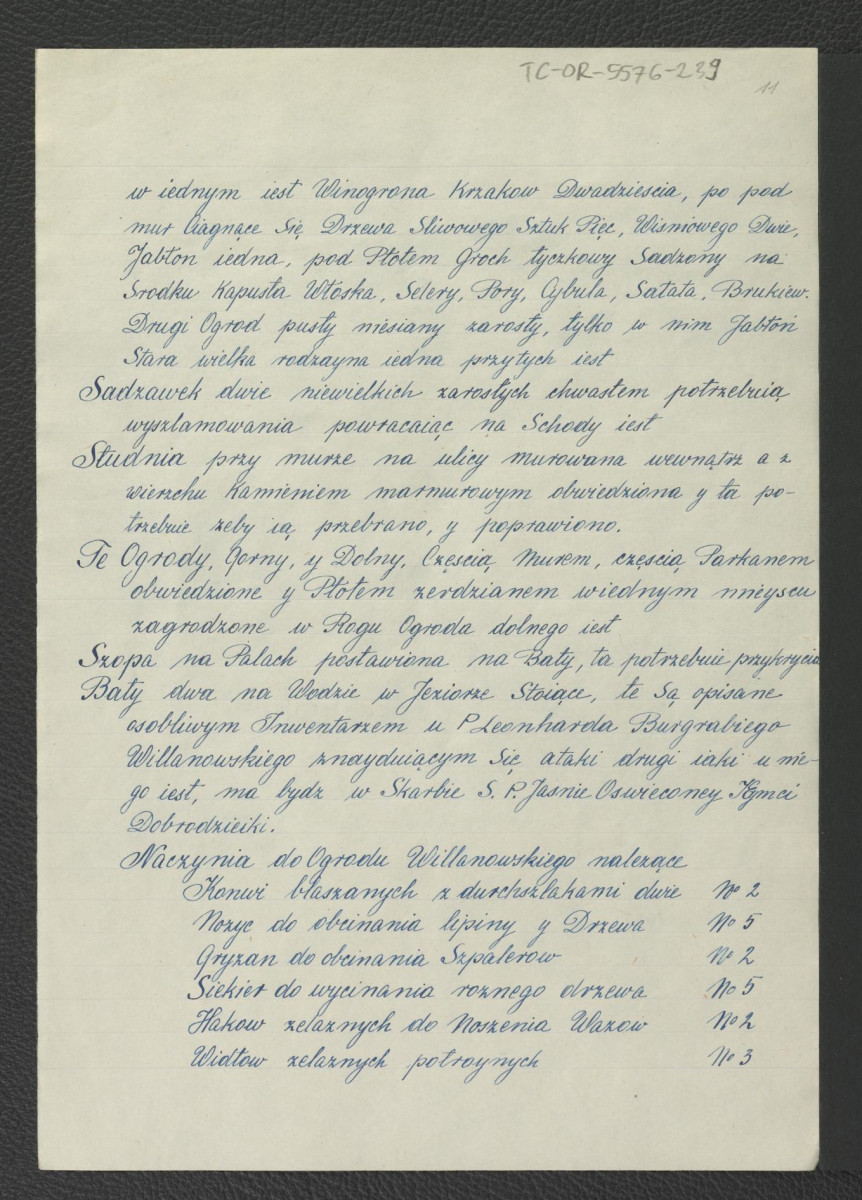 TC-OR-5576-239
11
w iednym iest Winogrona Krzakow Dwadziescia, po pod
mur Ciagnące Się Drzewa Sliwowego Sztuk Pięc, Wisniowego Dwie,
Jabłon iedna, pod Płotem Groch tyczkowy Sadzony na
Srodku Kapusta Włoska, Selery, Pory, Cybula, Sałata, Brukiew.
Drugi Ogrod pusty niesiany zarosły, tylko w nim Jabłoń
Stara wielka rodzayna iedna przytych iest
Sadzawek dwie niewielkich zarosłych chwastem potrzebuią
wyszlamowania powracaiąc na Schody iest
Studnia przy murze na ulicy murowana wewnątrz a z
wierzchu Kamieniem marmurowym obwiedziona y ta po-
trzebuie zeby ią przebrano, y poprawiono.
Te Ogrody, Gorny, y Dolny, Częscią Murem, częscią Parkanem
obwiedzione y Płotem zerdzianem wiednym mieyscu
zagrodzone w Rogu Ogroda dolnego iest
Szopa na Palach postawiona na Baty, ta potrzebuie przykrycia
Baty dwa na Wodzie w Jeziorze Stoiące, te Są opisane
osobliwym Inwentarzem u P Leonharda Burgrabiego
Willanowskiego znayduiącym Się ataki drugi iaki u nie-
go iest, ma bydz w Skarbie S. P. Jasnie Oswieconey
Dobrodzieiki.
Naczynia do Ogrodu Willanowskiego nalezące
Konwi błaszanych z durchszlakami dwie No 2
Nozyc do obcinania lipiny y Drzewa No 5
Gryzan do obcinania Szpalerow No 2
Siekier do wycinania roznego drzewa No 5
Hakow zelaznych do Noszenia Wazow No 2
Widłow zelaznych potroynych No 3